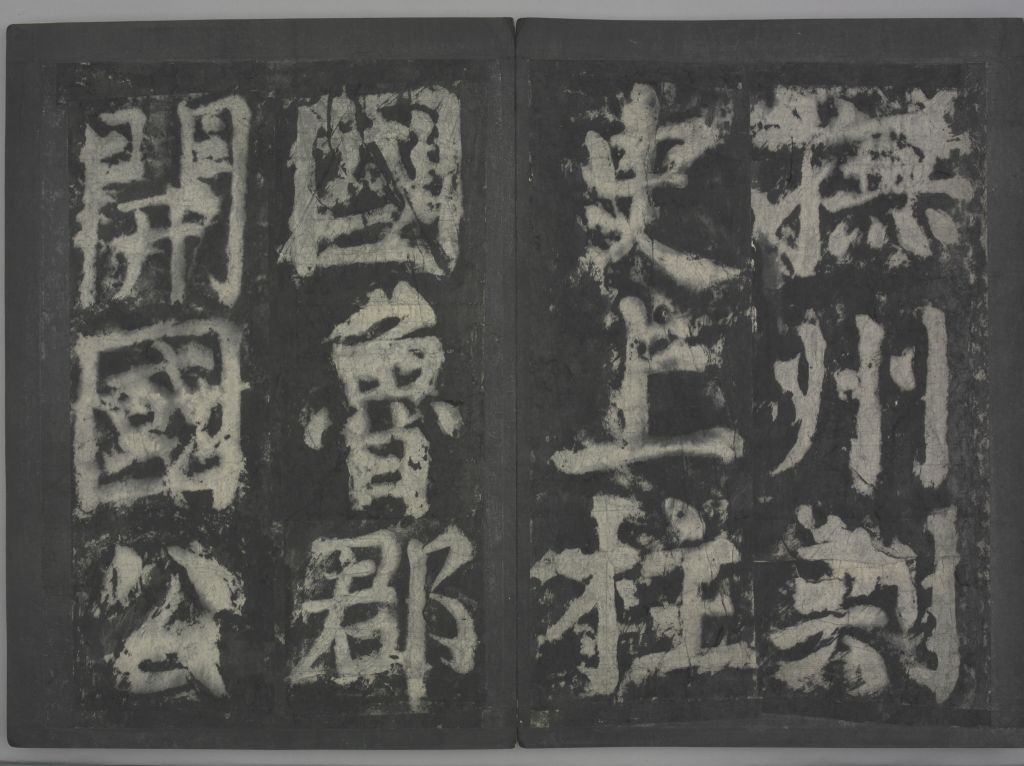 撫州刺
史上柱
國魯郡
開國公